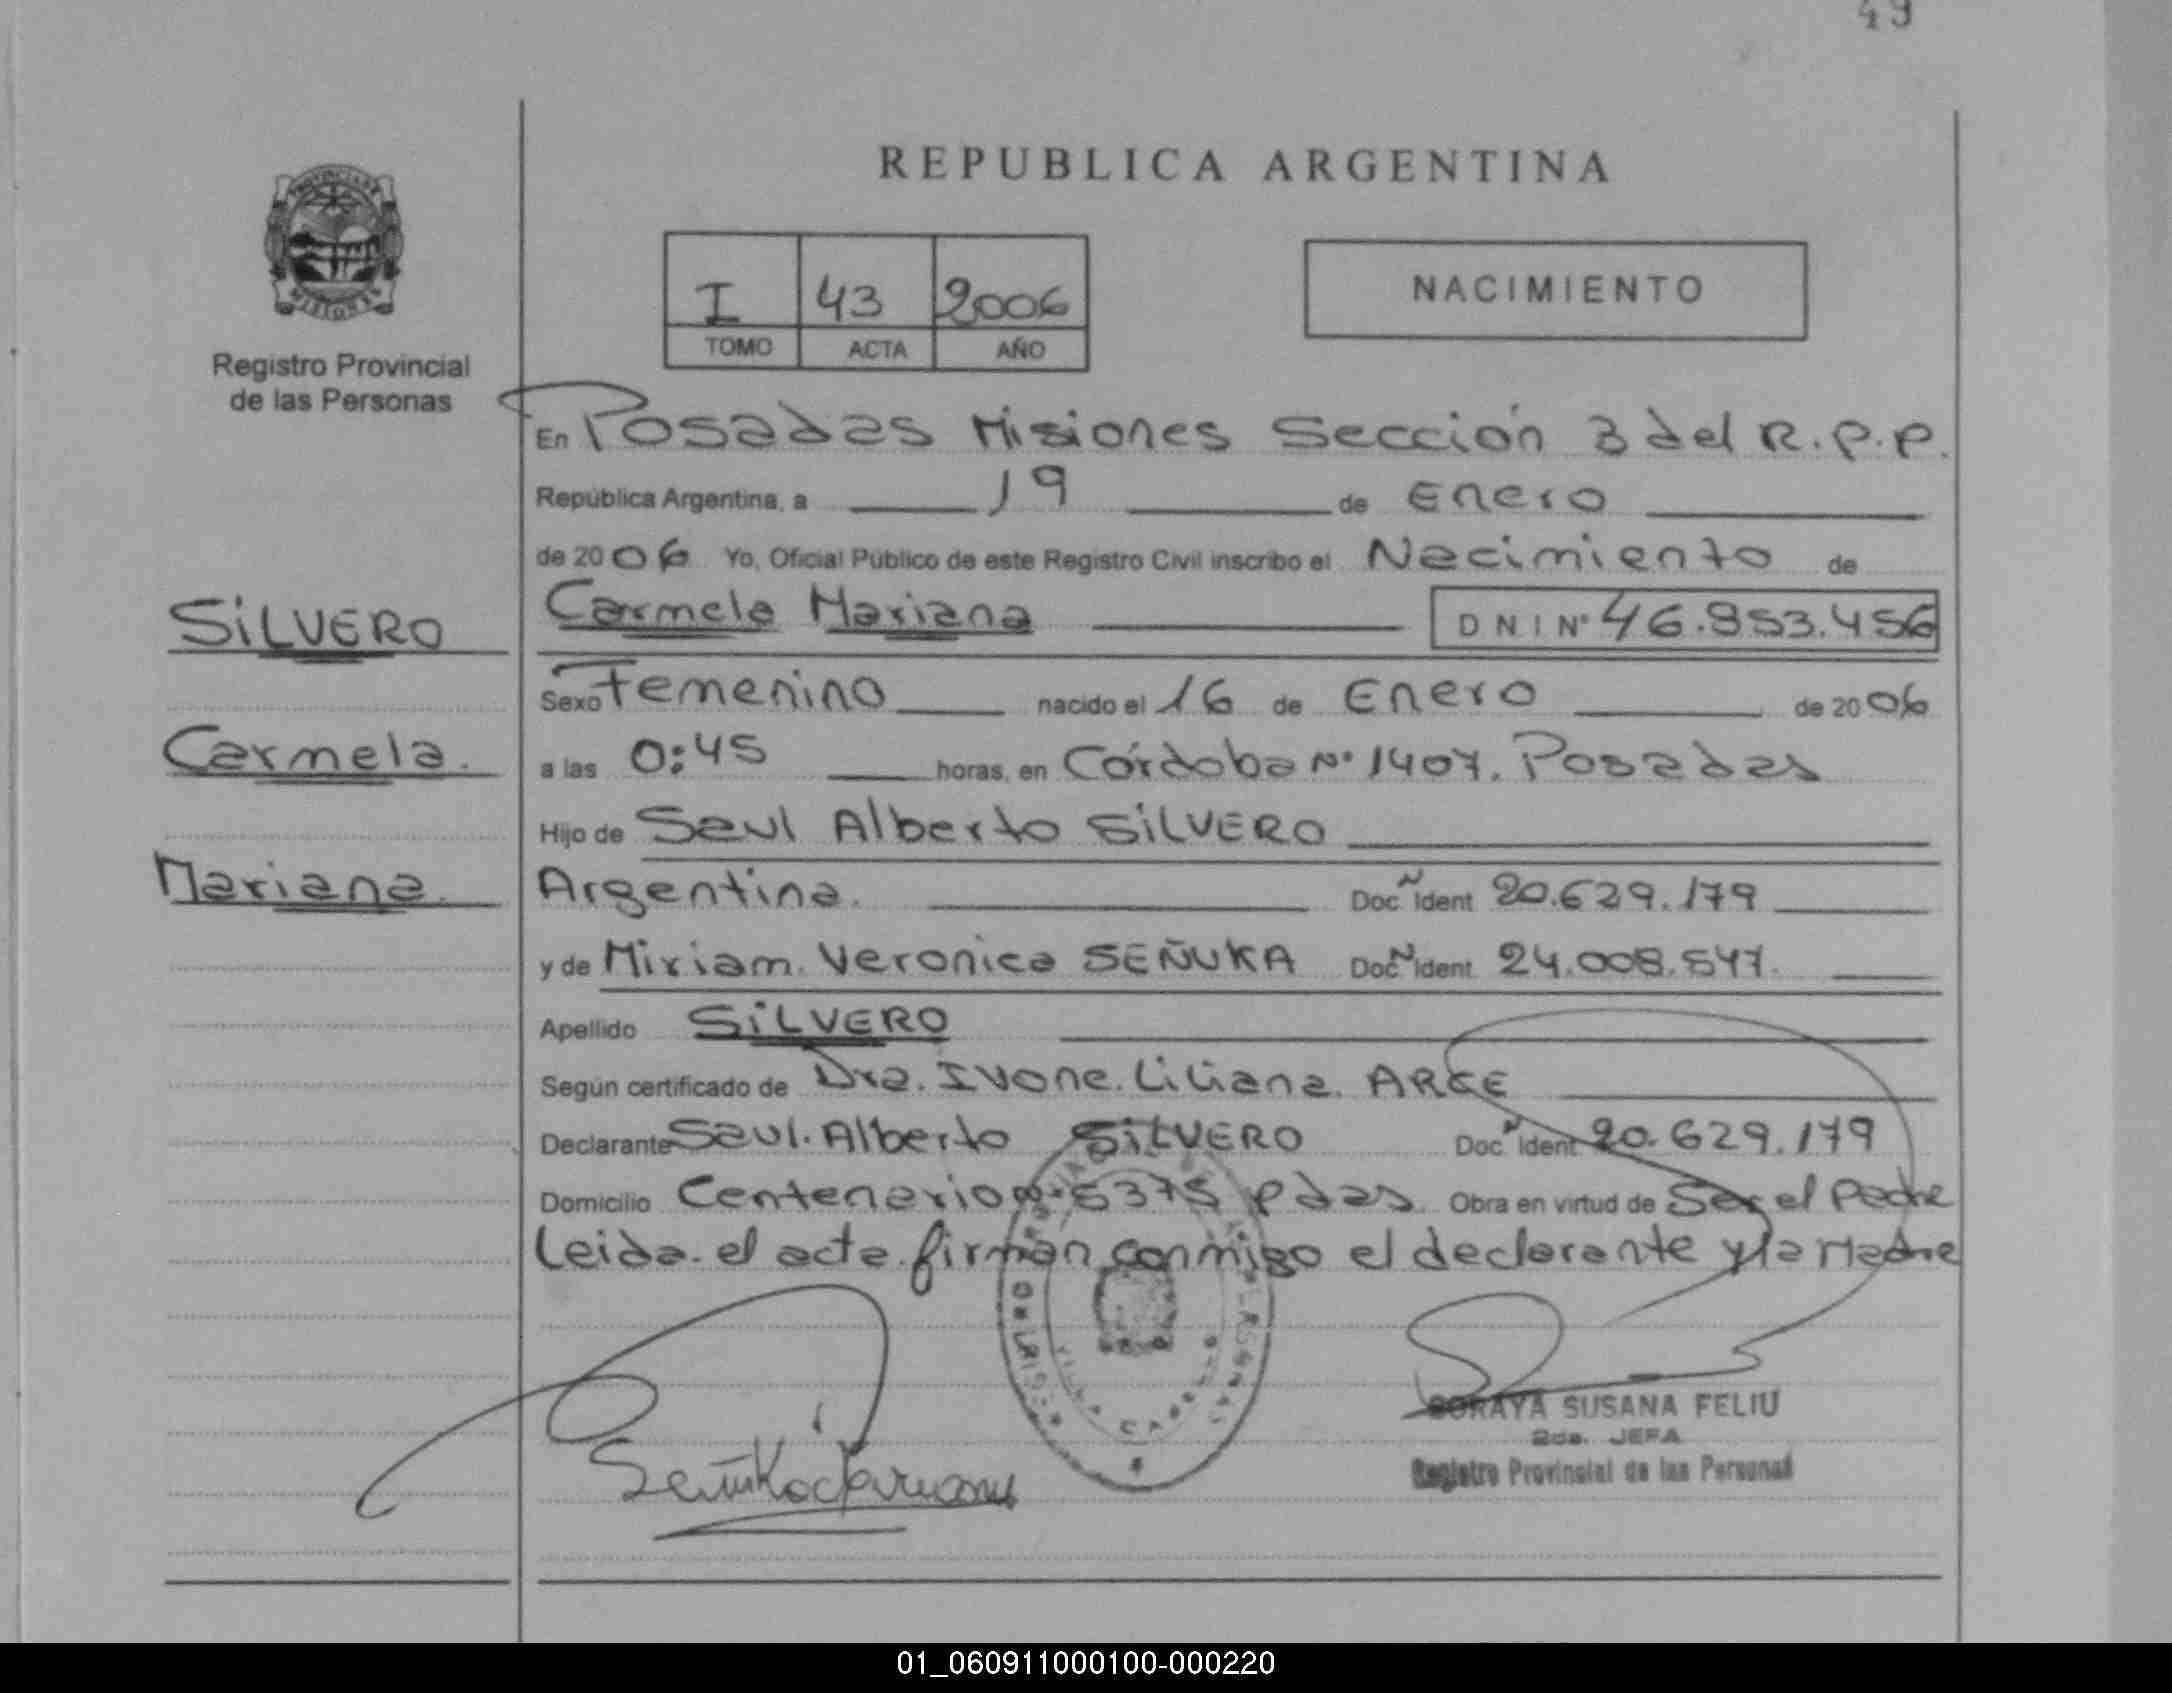 49
REPUBLICA ARGENTINA
PROVINCIA DE
MISIONES
Registro Provincial
de las Personas
I 43 2006
TOMO ACTA AÑO
NACIMIENTO
En Posadas Misiones Sección 3 del R.P.P.
República Argentina, a 19 de Enero
de 2006 Yo, Oficial Público de este Registro Civil inscribo el Nacimiento de
SILVERO
Carmela Mariana DNI Nº 46.953.456
Sexo Femenino nacido el 16 de Enero de 2006
Carmela.
a las 0:45 horas, en Córdoba Nº 1407. Posadas
Hijo de Saul Alberto SILVERO
Mariana.
Argentina. Doc Ident 20.629.179
y de Miriam. Veronica SEÑUKA Doc Ident 24.008.547.
Apellido SILVERO
Según certificado de Dra. Ivone. Liliana. ARCE
Declarante Saul. Alberto SILVERO Doc Ident 20.629.179
Domicilio Centenario Nº 5375 Pdas. Obra en virtud de Ser el Padre
Leida. el acta. firman conmigo el declarante y la Madre
SORAYA SUSANA FELIU
2da. JEFA
Registro Provincial de las Personas
01_060911000100-000220